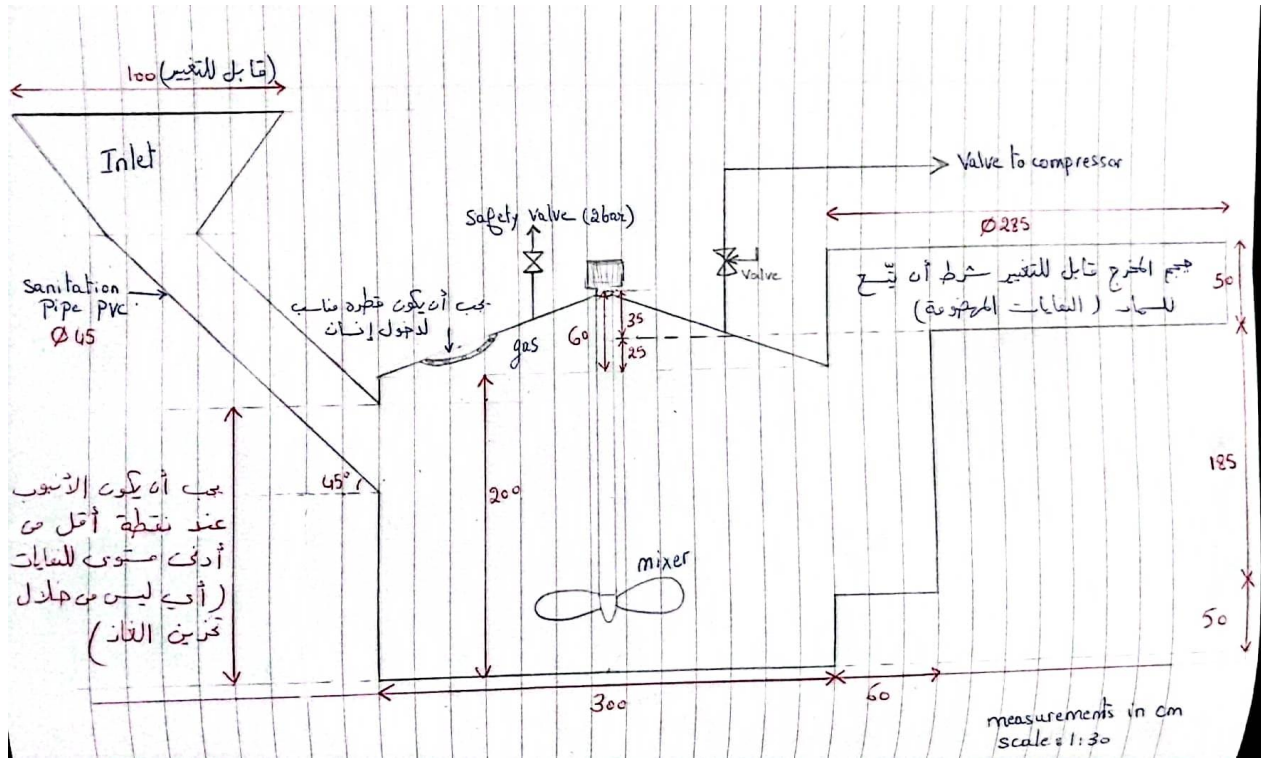 100 (قابل للتغيير)
Inlet
Valve to compressor
Safety valve (2bar)
Ø 235
Valve
حجم المخرج قابل للتغيير شرط أن يتّسع
للسماد (النفايات المهضومة)
50
sanitation
Pipe PVC
Ø 45
يجب أن يكون قطره مناسب
لدخول إنسان
gas
60
35
25
45°
200
185
يجب أن يكون الأنبوب
عند نقطة أقل من
أدنى مستوى للنفايات
(أي ليس من خلال
تخزين الغاز)
mixer
50
300
60
measurements in cm
scale: 1:30